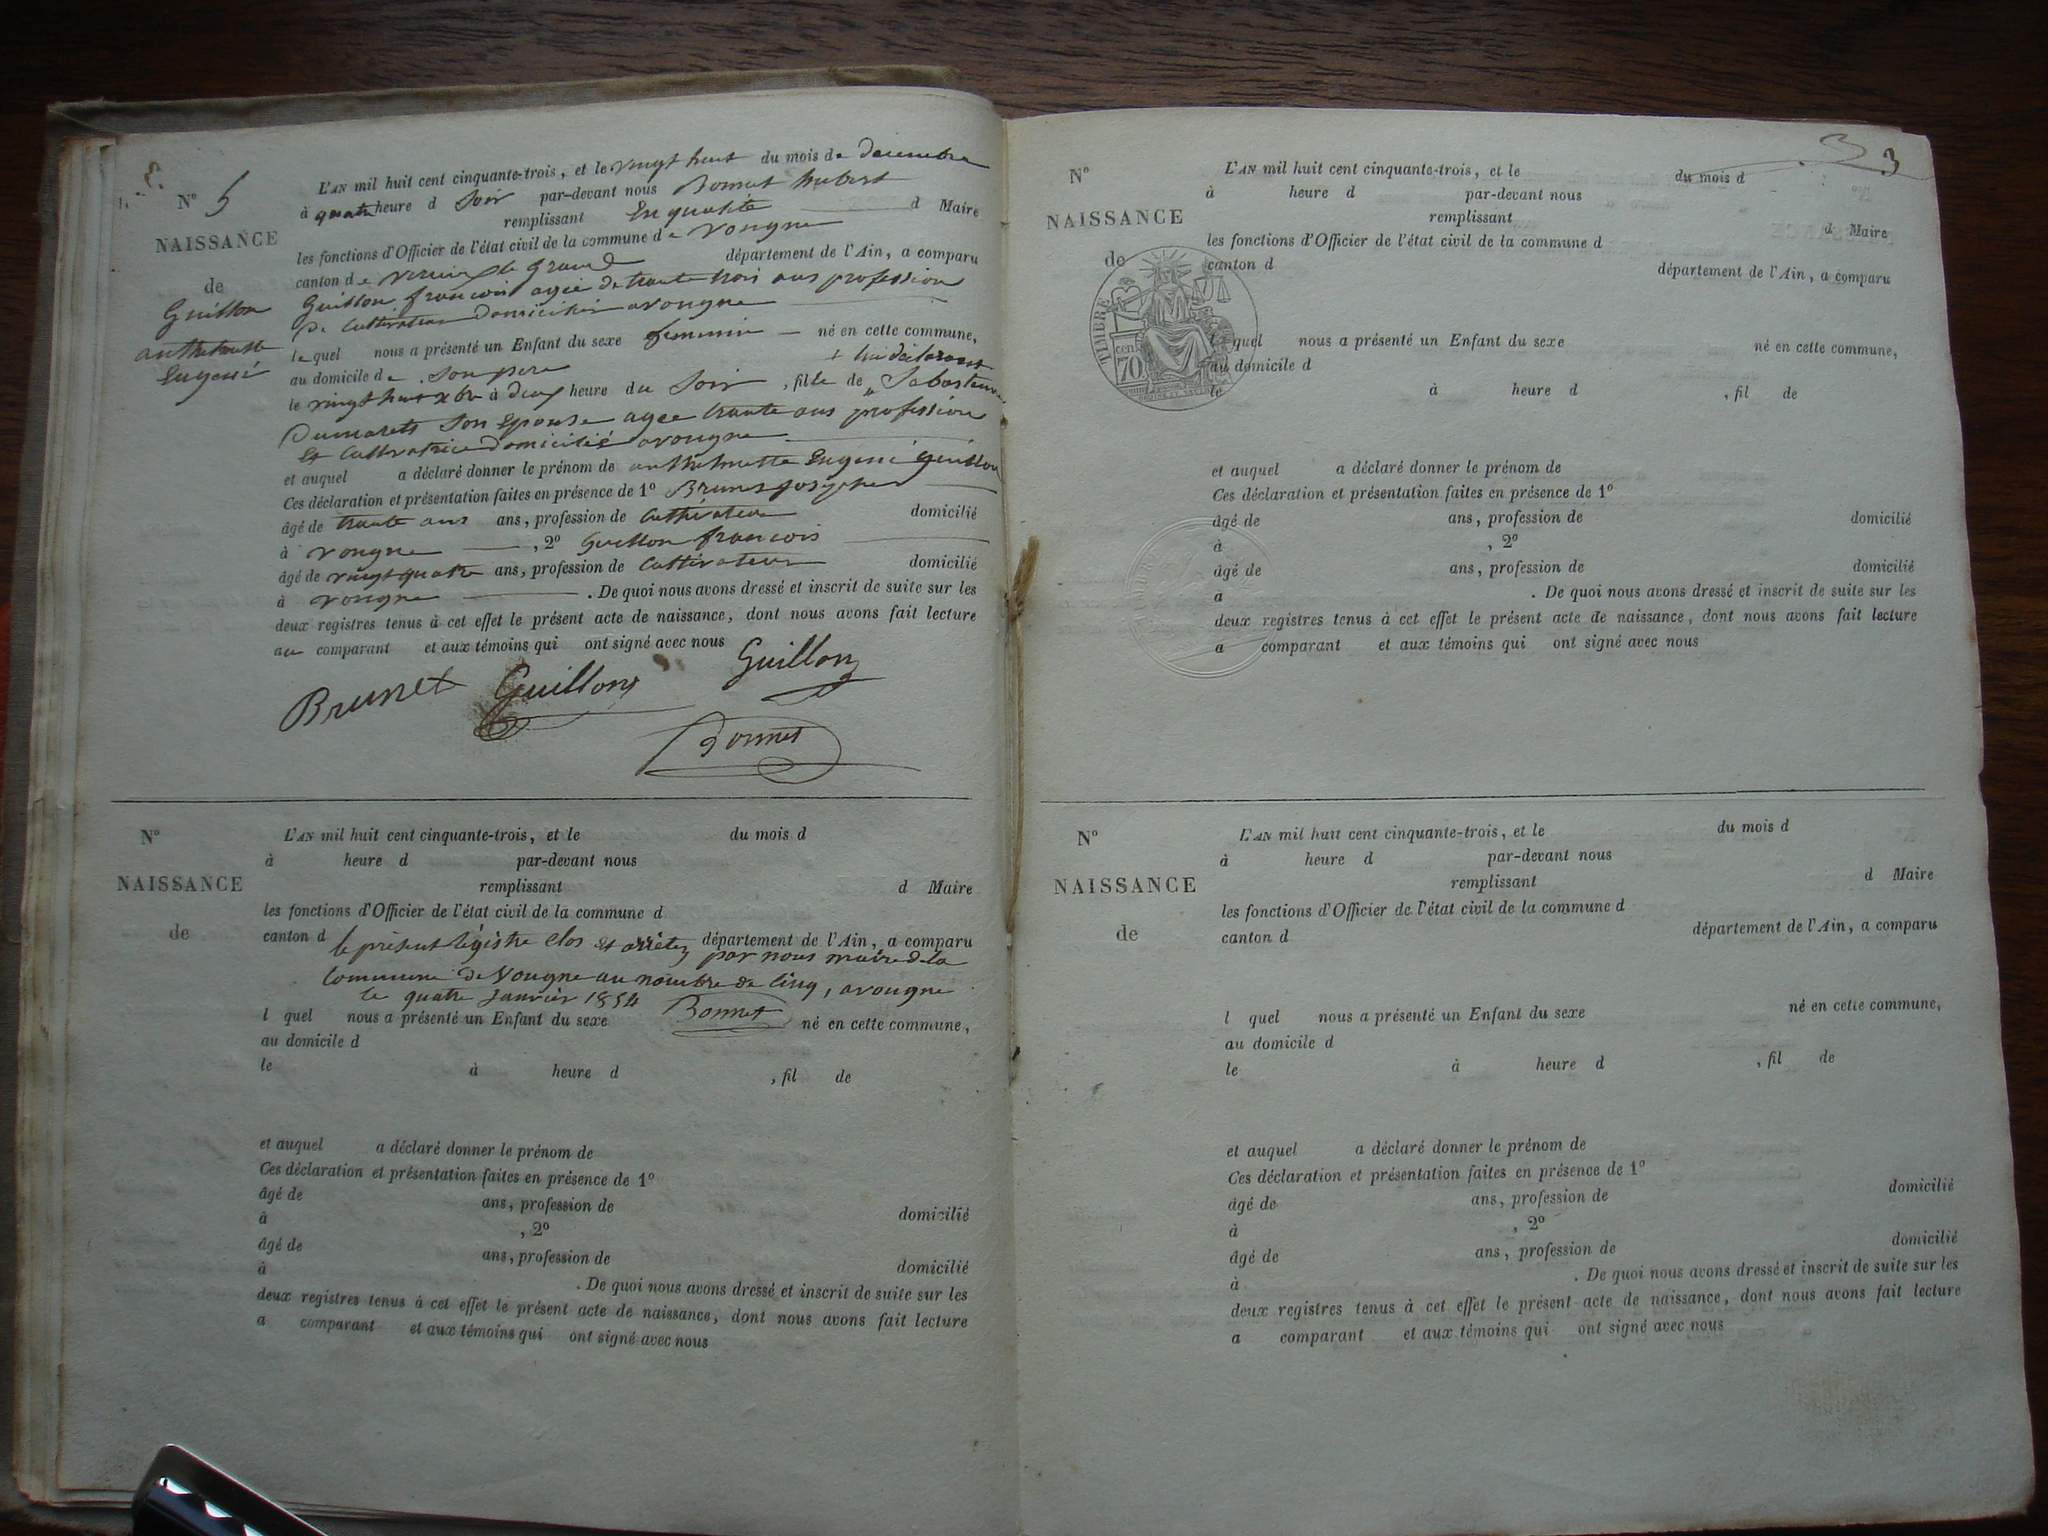 N° 5
NAISSANCE
de
Guillon
anthelmette
Eugenié
L'AN mil huit cent cinquante-trois, et le vingt huit du mois de decembre
à quatre heure d Soir par-devant nous Bonnet hubert
remplissant En qualité d Maire
les fonctions d'Officier de l'état civil de la commune de vongne
canton de virieu le grand département de l'Ain, a comparu
Guillon francois agée de trante trois ans profession
De Cultivateur domicilié a vongne
le quel nous a présenté un Enfant du sexe femenin né en cette commune,
au domicile de son pere
le vingt huit xbre à deux heure du Soir, fille de
Dumarets Son Epouse agee trante ans profession
Et Cultivatrice domicilié a vongne
et auquel a déclaré donner le prénom de anthelmette Eugenié guillon
Ces déclaration et présentation faites en présence de 1°
âgé de trante ans ans, profession de Cultivateur domicilié
à vongne, 2° Guillon francois
âgé de vingt quatre ans, profession de Cultivateur domicilié
à vongne. De quoi nous avons dressé et inscrit de suite sur les
deux registres tenus à cet effet le présent acte de naissance, dont nous avons fait lecture
au comparant et aux témoins qui ont signé avec nous
Brunet Guillon Guillon
Bonnet
N°
NAISSANCE
de
L'AN mil huit cent cinquante-trois, et le du mois d
à heure d par-devant nous
remplissant d Maire
les fonctions d'Officier de l'état civil de la commune d
canton d département de l'Ain, a comparu
le présent Registre clos et arrêtez par nous maire de la
Commune de Vongne au nombre de Cinq, a vongne
le quatre Janvier 1854 Bonnet
l quel nous a présenté un Enfant du sexe né en cette commune,
au domicile d
le à heure d, fil de
et auquel a déclaré donner le prénom de
Ces déclaration et présentation faites en présence de 1°
âgé de ans, profession de domicilié
à, 2°
âgé de ans, profession de domicilié
à. De quoi nous avons dressé et inscrit de suite sur les
deux registres tenus à cet effet le présent acte de naissance, dont nous avons fait lecture
a comparant et aux témoins qui ont signé avec nous
3
N°
NAISSANCE
de
TIMBRE
70 cen.
L'AN mil huit cent cinquante-trois, et le du mois d
à heure d par-devant nous
remplissant d Maire
les fonctions d'Officier de l'état civil de la commune d
canton d département de l'Ain, a comparu
l quel nous a présenté un Enfant du sexe né en cette commune,
au domicile d
le à heure d, fil de
et auquel a déclaré donner le prénom de
Ces déclaration et présentation faites en présence de 1°
âgé de ans, profession de domicilié
à, 2°
âgé de ans, profession de domicilié
a. De quoi nous avons dressé et inscrit de suite sur les
deux registres tenus à cet effet le présent acte de naissance, dont nous avons fait lecture
a comparant et aux témoins qui ont signé avec nous
N°
NAISSANCE
de
L'AN mil huit cent cinquante-trois, et le du mois d
à heure d par-devant nous
remplissant d Maire
les fonctions d'Officier de l'état civil de la commune d
canton d département de l'Ain, a comparu
l quel nous a présenté un Enfant du sexe né en cette commune,
au domicile d
le à heure d, fil de
et auquel a déclaré donner le prénom de
Ces déclaration et présentation faites en présence de 1°
âgé de ans, profession de domicilié
à, 2°
âgé de ans, profession de domicilié
à. De quoi nous avons dressé et inscrit de suite sur les
deux registres tenus à cet effet le présent acte de naissance, dont nous avons fait lecture
a comparant et aux témoins qui ont signé avec nous